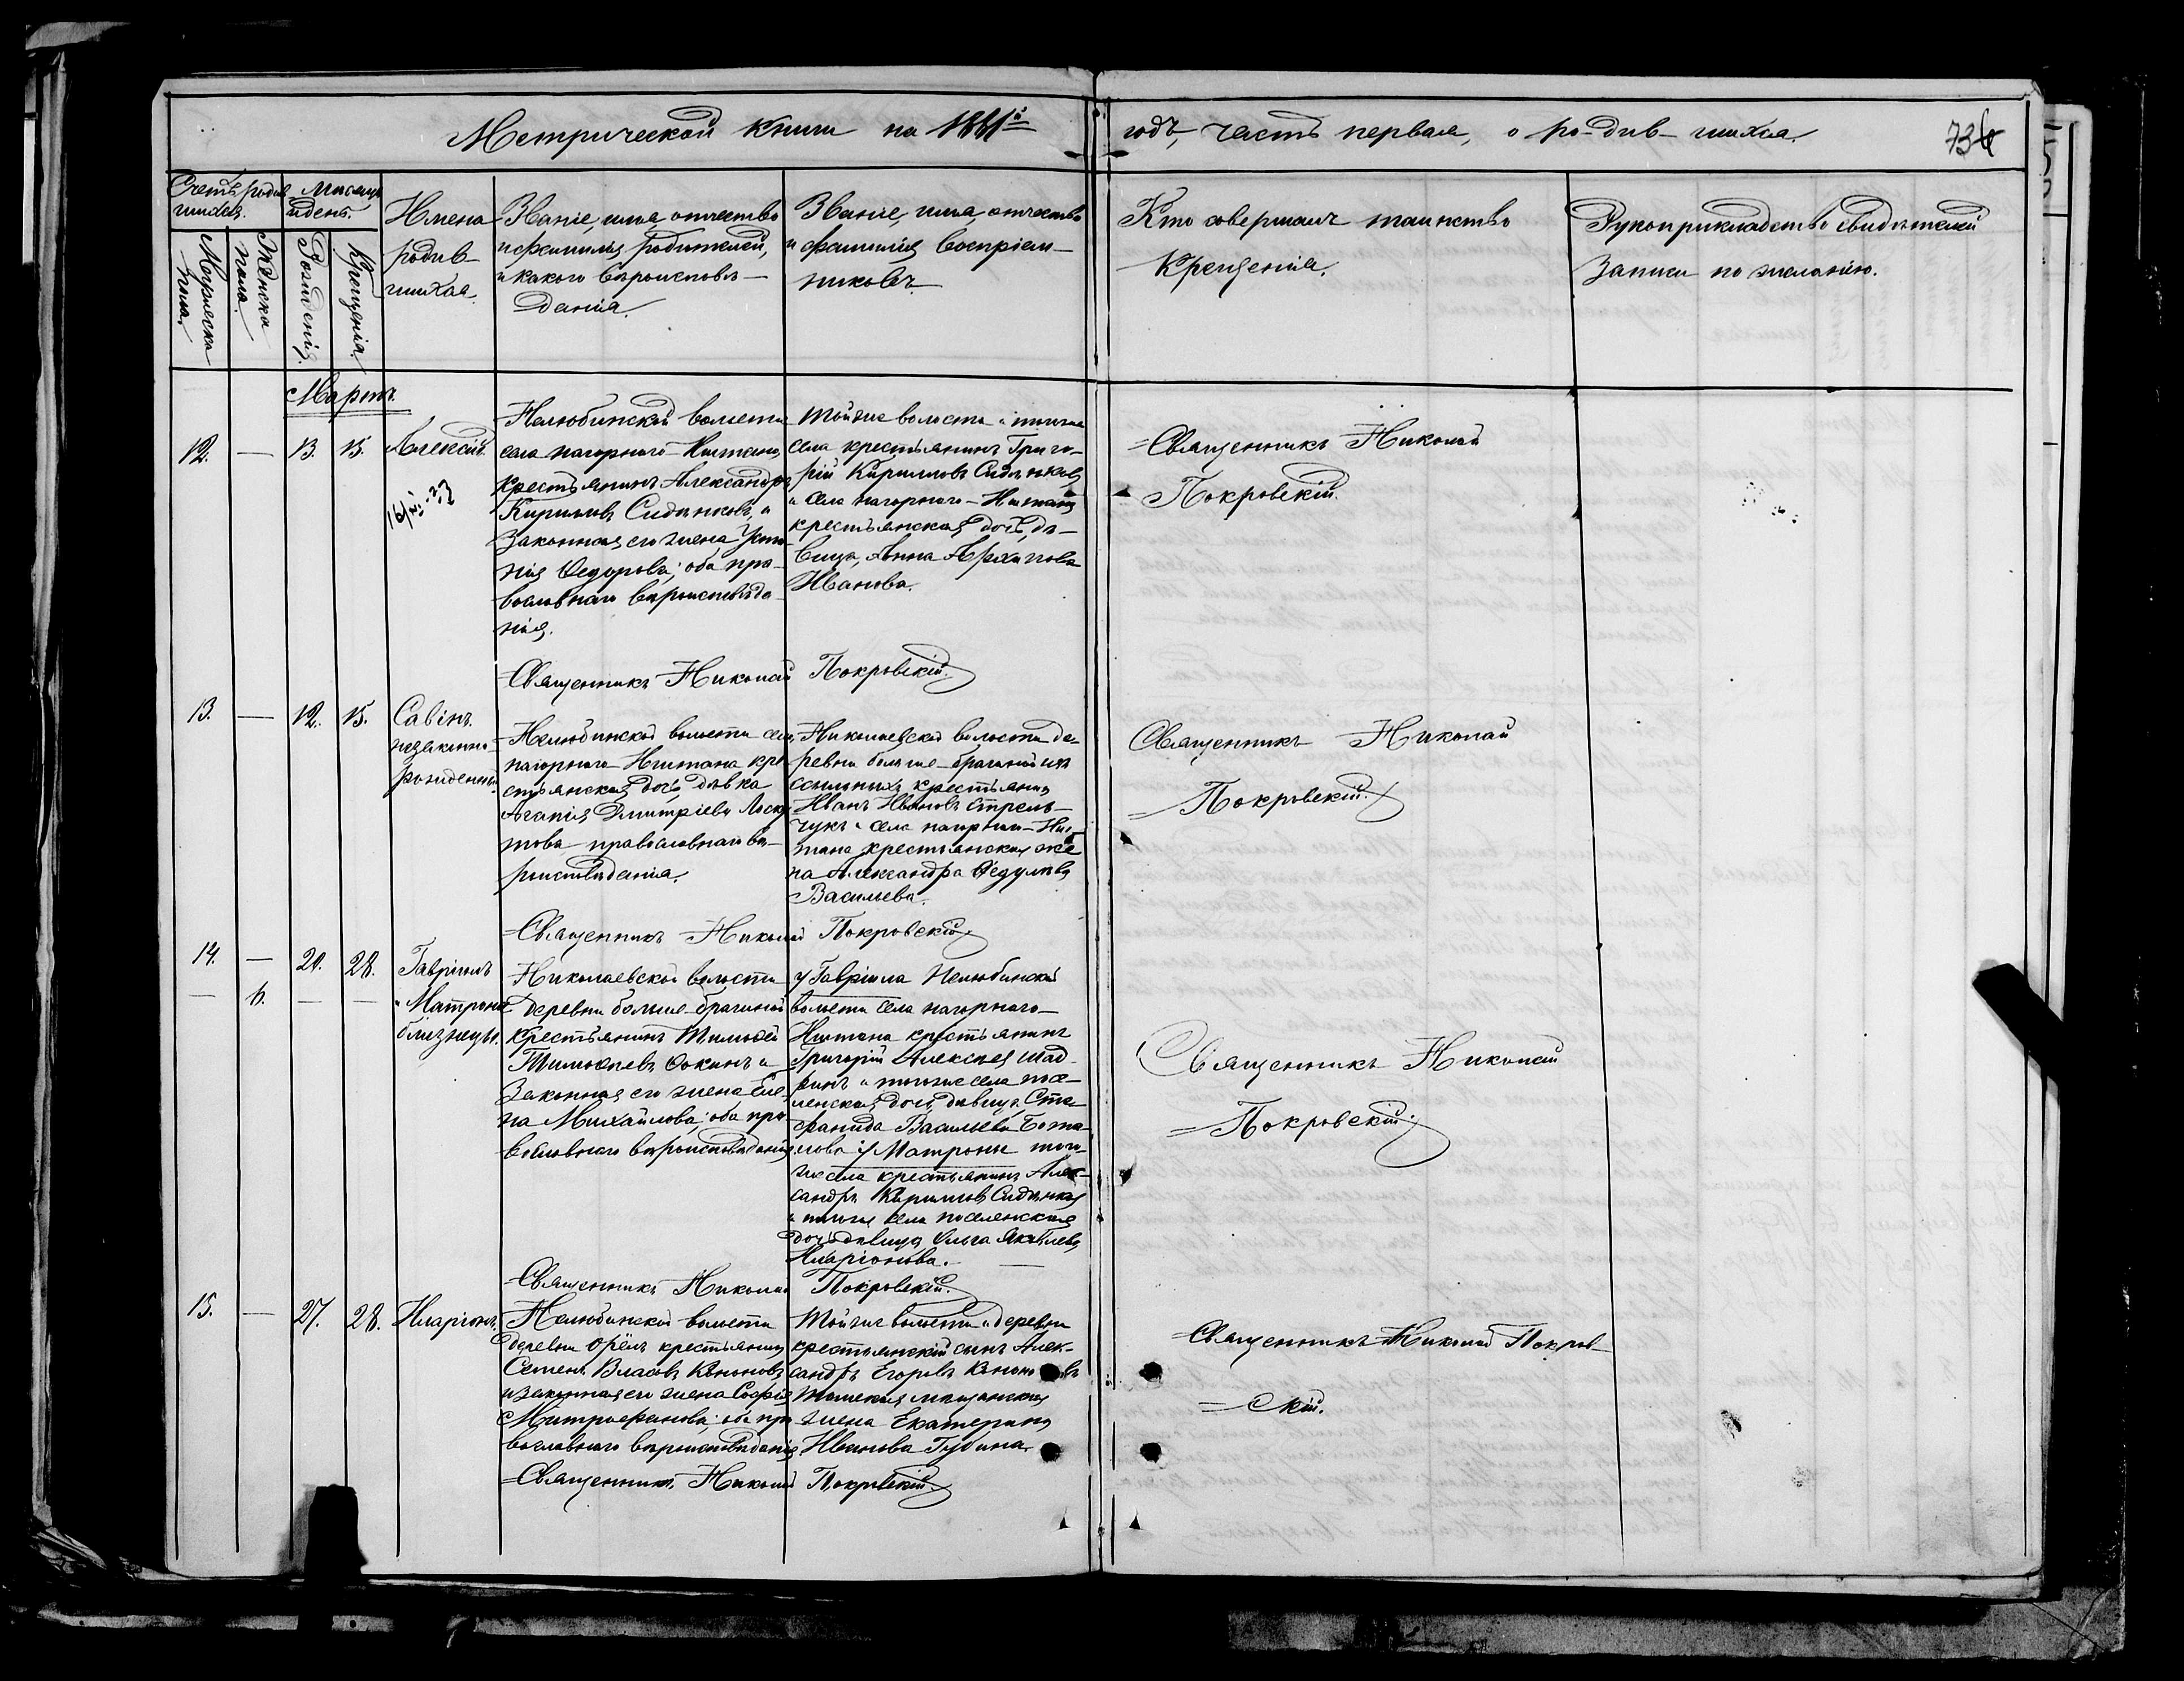 Метрической книги на 1881й
годъ, часть первая, о родив-шихся.
734
Счетъ родив
шихся.
Мужеска
пола.
Женска
пола.
Мѣсяцъ
и день.
Рожденія.
Крещенія.
Имена
родив-
шихся.
Званіе, имя, отчество
и фамилія родителей,
и какого вѣроисповѣ-
данія.
Званіе, имя, отчество
и фамилія воспріем-
никовъ.
Кто совершалъ таинство
Крещенія.
Рукоприкладство свидѣтелей
записи по желанію.
Мартъ.
12. — 13. 15. Алексій.
Нелюбинской волости
села нагорнаго-Иштана,
крестьянинъ Александръ
Кириловъ Сидѣнковъ, и
законная его жена Усти-
нія Ѳедорова; оба пра-
вославнаго вѣроисповѣда-
нія.
Тойже волости и тогоже
села крестьянинъ Григо-
рій Кирилловъ Сидѣнковъ
и села нагорнаго-Иштана
крестьянская дочь, дѣ-
вица, Анна Архипова
Иванова.
Священникъ Николай
Покровскій.
Священникъ Николай Покровскій.
13. — 12. 15. Савинъ
незаконно-
рожденный.
Нелюбинской волости села
нагорнаго-Иштана кре-
стьянская дочь, дѣвка
Агапія Димитріева Лоску
това православнаго вѣ-
роисповѣданія.
Николаевской волости де-
ревни больше-брагиной изъ
ссыльныхъ крестьянинъ
Иванъ Ивановъ Стрель-
чукъ и села нагорнаго-Иш-
тана крестьянская же
на Александра Ѳедулова
Васильева.
Священникъ Николай
Покровскій.
Священникъ Николай Покровскій.
14. — 20. 28. Гавріилъ
— 6. — — и Матрона
близнецы.
Николаевской волости
деревни больше-брагиной
крестьянинъ Тимоѳей
Тимоѳеевъ Ѳокинъ и
законная его жена Еле-
на Михайлова; оба пра-
вославнаго вѣроисповѣданія.
у Гавріила Нелюбинской
волости села нагорнаго-
Иштана крестьянинъ
Григорій Алексѣевъ Шад-
ринъ и тогоже села посе-
ленская дочь, дѣвица, Сте-
фанида Васильева
у Матроны того-
же села крестьянинъ Алек-
сандръ Кириловъ Сидѣнковъ
и тогоже села поселенская
дочь дѣвица Ольга Яковлева
Иларіонова.
Священникъ Николай
Покровскій.
Священникъ Николай Покровскій.
15. — 27. 28. Иларіонъ.
Нелюбинской волости
деревни Орёлъ крестьянинъ
Семенъ Власовъ Кононовъ
и законная его жена Софія
Митрофанова; оба пра
вославнаго вѣроисповѣданія.
Тойже волости и деревни
крестьянскій сынъ Алек-
сандръ Егоровъ Кононовъ
Томская мѣщанская
жена Екатерина
Иванова Губина.
Священникъ Николай Покров-
скій.
Священникъ Николай Покровскій.